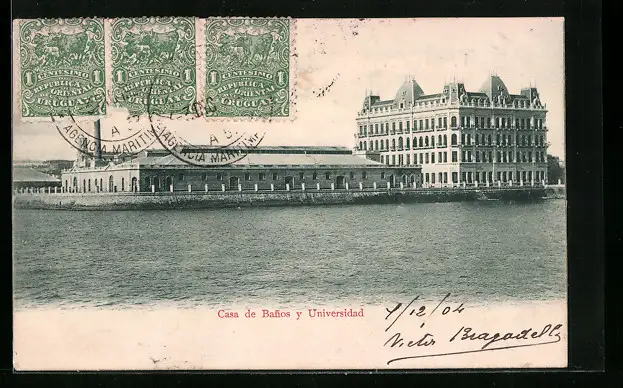 1 CENTESIMO 1
REPUBLICA
ORIENTAL
URUGUAY
1 CENTESIMO 1
REPUBLICA
ORIENTAL
URUGUAY
1 CENTESIMO 1
REPUBLICA
ORIENTAL
URUGUAY
AGENCIA MARITIMA
AGENCIA MARITIMA
Casa de Baños y Universidad
1/12/04
Victor Bragadelli